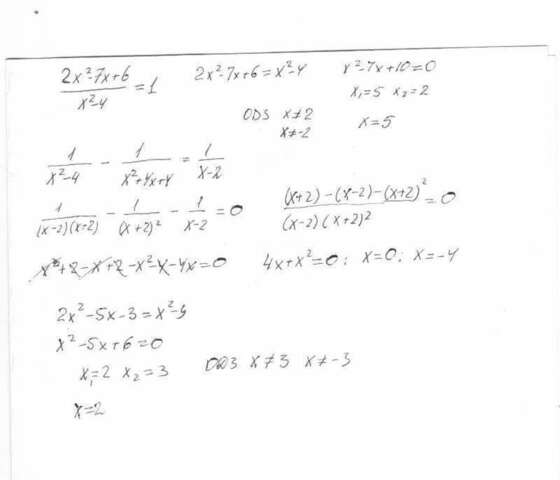 (2x²-7x+6)/(x²-4) = 1   2x²-7x+6 = x²-4   x²-7x+10=0
x₁=5 x₂=2
ОДЗ x≠2   x=5
x≠-2
1/(x²-4) - 1/(x²+4x+4) = 1/(x-2)
1/((x-2)(x+2)) - 1/(x+2)² - 1/(x-2) = 0   ((x+2)-(x-2)-(x+2)²)/((x-2)(x+2)²) = 0
x+2-x+2-x²-4-4x=0   4x+x²=0; x=0; x=-4
2x²-5x-3=x²-9
x²-5x+6=0
x₁=2 x₂=3   ОДЗ x≠3 x≠-3
x=2